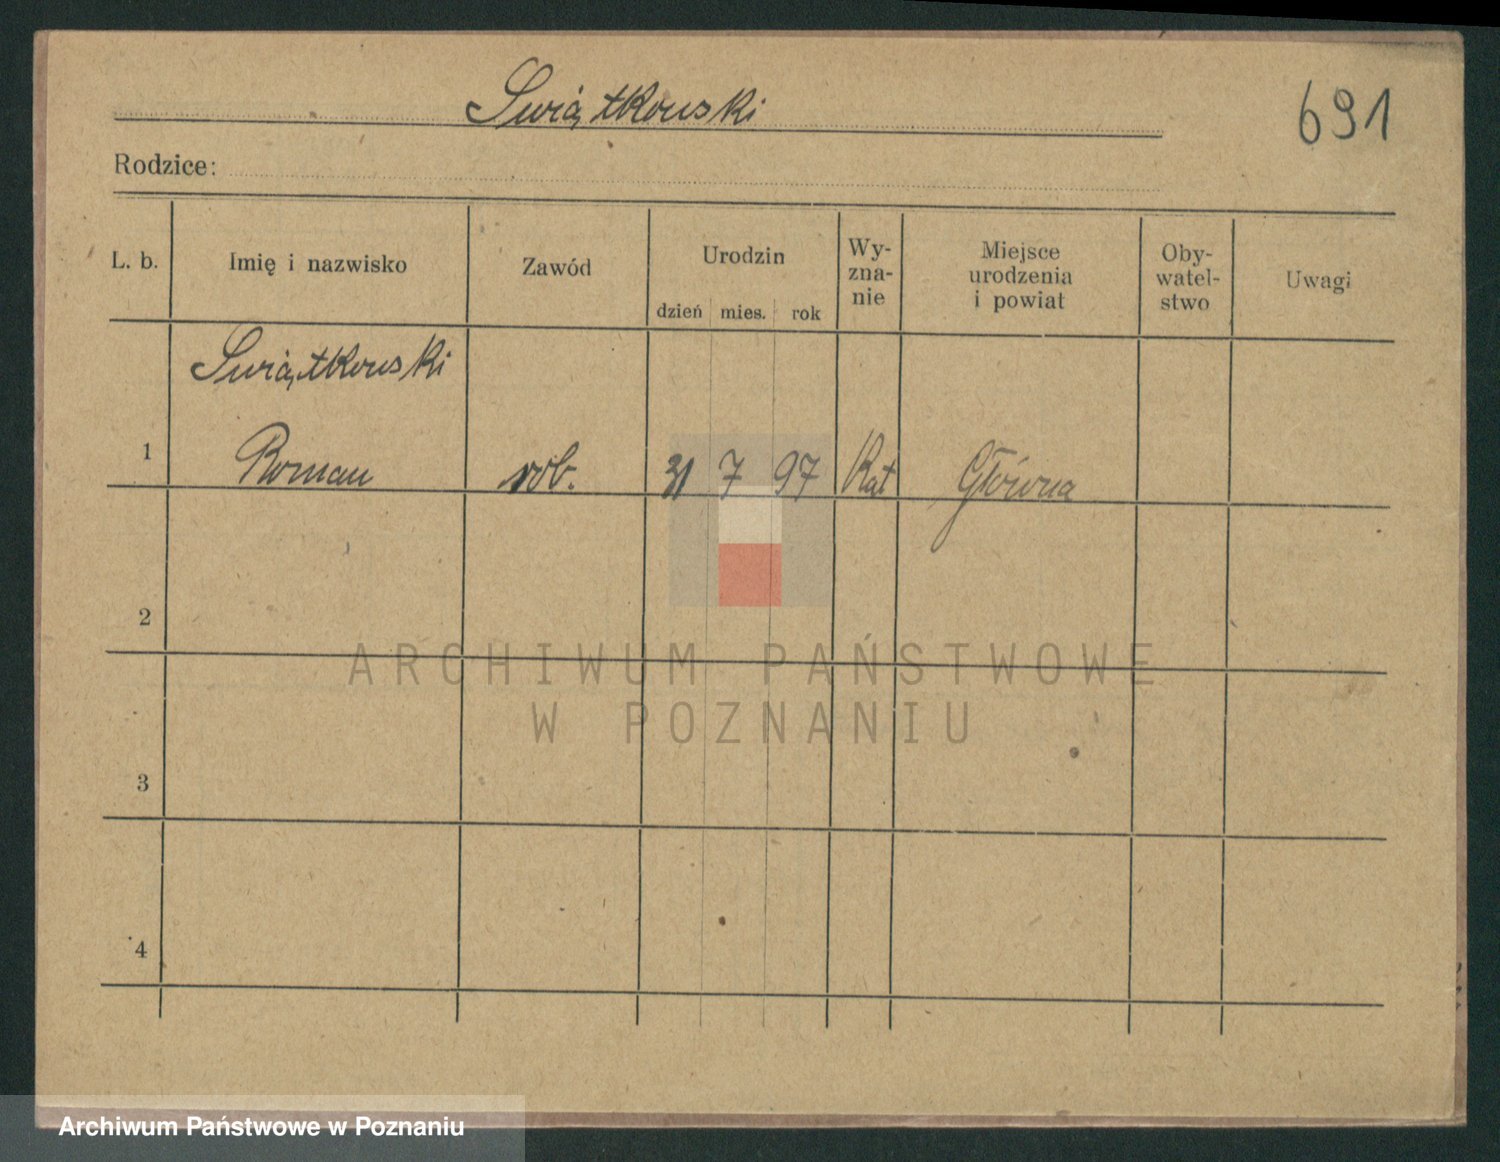 Swiątkowski
691
Rodzice:
L. b. Imię i nazwisko Zawód Urodzin dzień mies. rok Wy-zna-nie Miejsce urodzenia i powiat Oby-watel-stwo Uwagi
Swiątkowski
1 Roman rob. 31 7 97 Kat Główna
2
3
4
ARCHIWUM PAŃSTWOWE
W POZNANIU
Archiwum Państwowe w Poznaniu